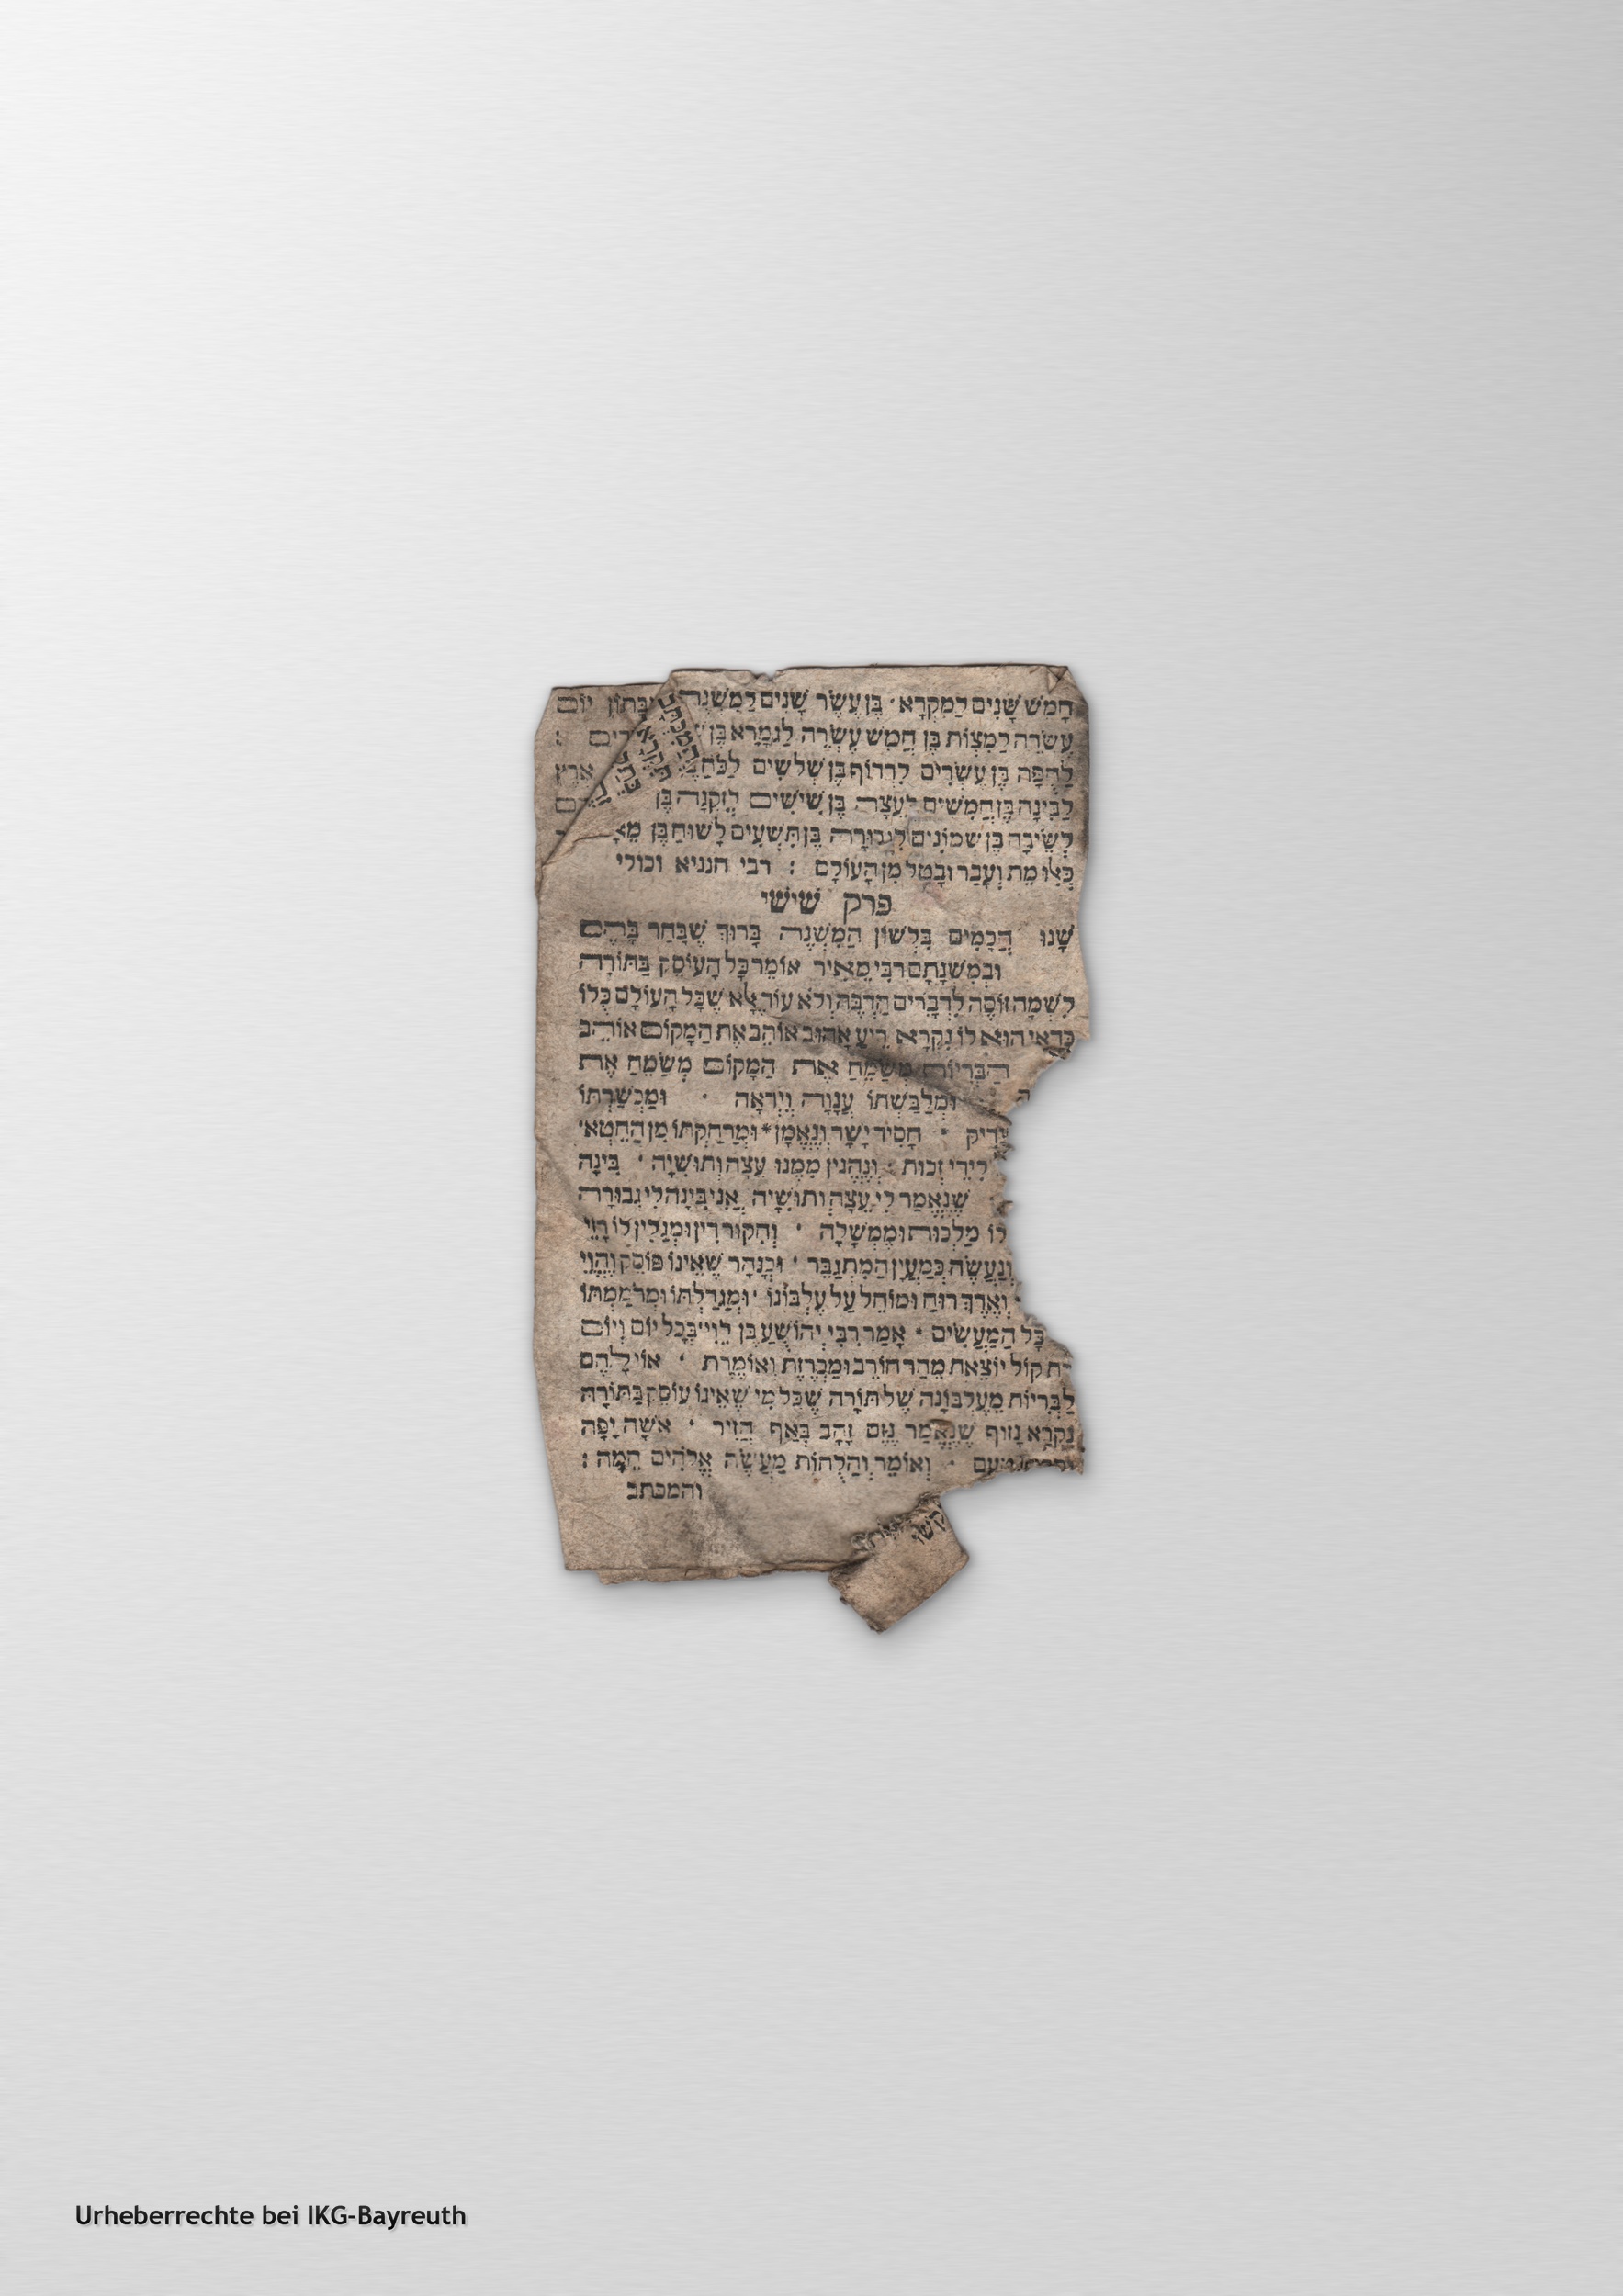 חָמֵשׁ שָׁנִים לַמִּקְרָא · בֶּן עֶשֶׂר שָׁנִים לַמִּשְׁנָה
עֶשְׂרֵה לַמִּצְוֹת בֶּן חֲמֵשׁ עֶשְׂרֵה לַגְּמָרָא בֶּן
לַחֻפָּה בֶּן עֶשְׂרִים לִרְדּוֹף בֶּן שְׁלשִׁים ארץ
לַבִּינָה בֶּן חֲמִשִּׁים לְעֵצָה בֶּן שִׁישִׁים לְזִקְנָה בֶּן
לְשֵׂיבָה בֶּן שְׁמוֹנִים לִגְבוּרָה בֶּן תִּשְׁעִים לָשׁוּחַ בֶּן
כְּאִלּוּ מֵת וְעָבַר וּבָטֵל מִן הָעוֹלָם : רבי חנניא וכולי
פרק שישי
שָׁנוּ חֲכָמִים בִּלְשׁוֹן הַמִּשְׁנָה בָּרוּךְ שֶׁבָּחַר בָּהֶם
וּבְמִשְׁנָתָם רַבִּי מֵאִיר אוֹמֵר כָּל הָעוֹסֵק בַּתּוֹרָה
לִשְׁמָהּ זוֹכֶה לִדְבָרִים הַרְבֵּה וְלֹא עוֹד אֶלָּא שֶׁכָּל הָעוֹלָם כֻּלּוֹ
כְּדַאי הוּא לוֹ נִקְרָא רֵיעַ אָהוּב אוֹהֵב אֶת הַמָּקוֹם אוֹהֵב
הַבְּרִיּוֹת מְשַׂמֵּחַ אֶת הַמָּקוֹם מְשַׂמֵּחַ אֶת
וּמְלַבַּשְׁתּוֹ עֲנָוָה וְיִרְאָה · וּמַכְשַׁרְתּוֹ
· חָסִיד יָשָׁר וְנֶאֱמָן * וּמְרַחַקְתּוֹ מִן הַחֵטְא ·
לִידֵי זְכוּת · וְנֶהֱנִין מִמֶּנּוּ עֵצָה וְתוּשִׁיָּה · בִּינָה
שֶׁנֶּאֱמַר לִי עֵצָה וְתוּשִׁיָּה אֲנִי בִינָה לִי גְבוּרָה
לוֹ מַלְכוּת וּמֶמְשָׁלָה · וְחִקּוּר דִּין וּמְגַלִּין לוֹ רָזֵי
וְנַעֲשֶׂה כְּמַעְיָן הַמִּתְגַּבֵּר · וּכְנָהָר שֶׁאֵינוֹ פּוֹסֵק וְהֱוֵי
· וְאֶרֶךְ רוּחַ וּמוֹחֵל עַל עֶלְבּוֹנוֹ · וּמְגַדַּלְתּוֹ וּמְרֹמַמְתּוֹ
כָּל הַמַּעֲשִׂים · אָמַר רִבִּי יְהוֹשֻׁעַ בֶּן לֵוִי בְּכָל יוֹם וְיוֹם
קוֹל יוֹצֵאת מֵהַר חוֹרֵב וּמַכְרֶזֶת וְאוֹמֶרֶת · אוֹי לָהֶם
לַבְּרִיּוֹת מֵעֶלְבּוֹנָהּ שֶׁל תּוֹרָה שֶׁכָּל מִי שֶׁאֵינוֹ עוֹסֵק בַּתּוֹרָה
נִקְרָא נָזוּף שֶׁנֶּאֱמַר נֶזֶם זָהָב בְּאַף חֲזִיר · אִשָּׁה יָפָה
טָעַם · וְאוֹמֵר וְהַלֻּחוֹת מַעֲשֵׂה אֱלֹהִים הֵמָּה :
והמכתב
Urheberrechte bei IKG-Bayreuth